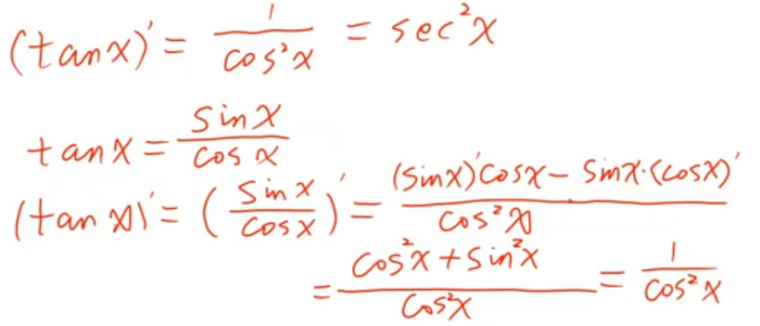 (tanx)' = 1/cos²x = sec²x
tanx = sinx/cosx
(tanx)' = (sinx/cosx)' = ((sinx)'cosx - sinx·(cosx)')/cos²x
= (cos²x + sin²x)/cos²x = 1/cos²x